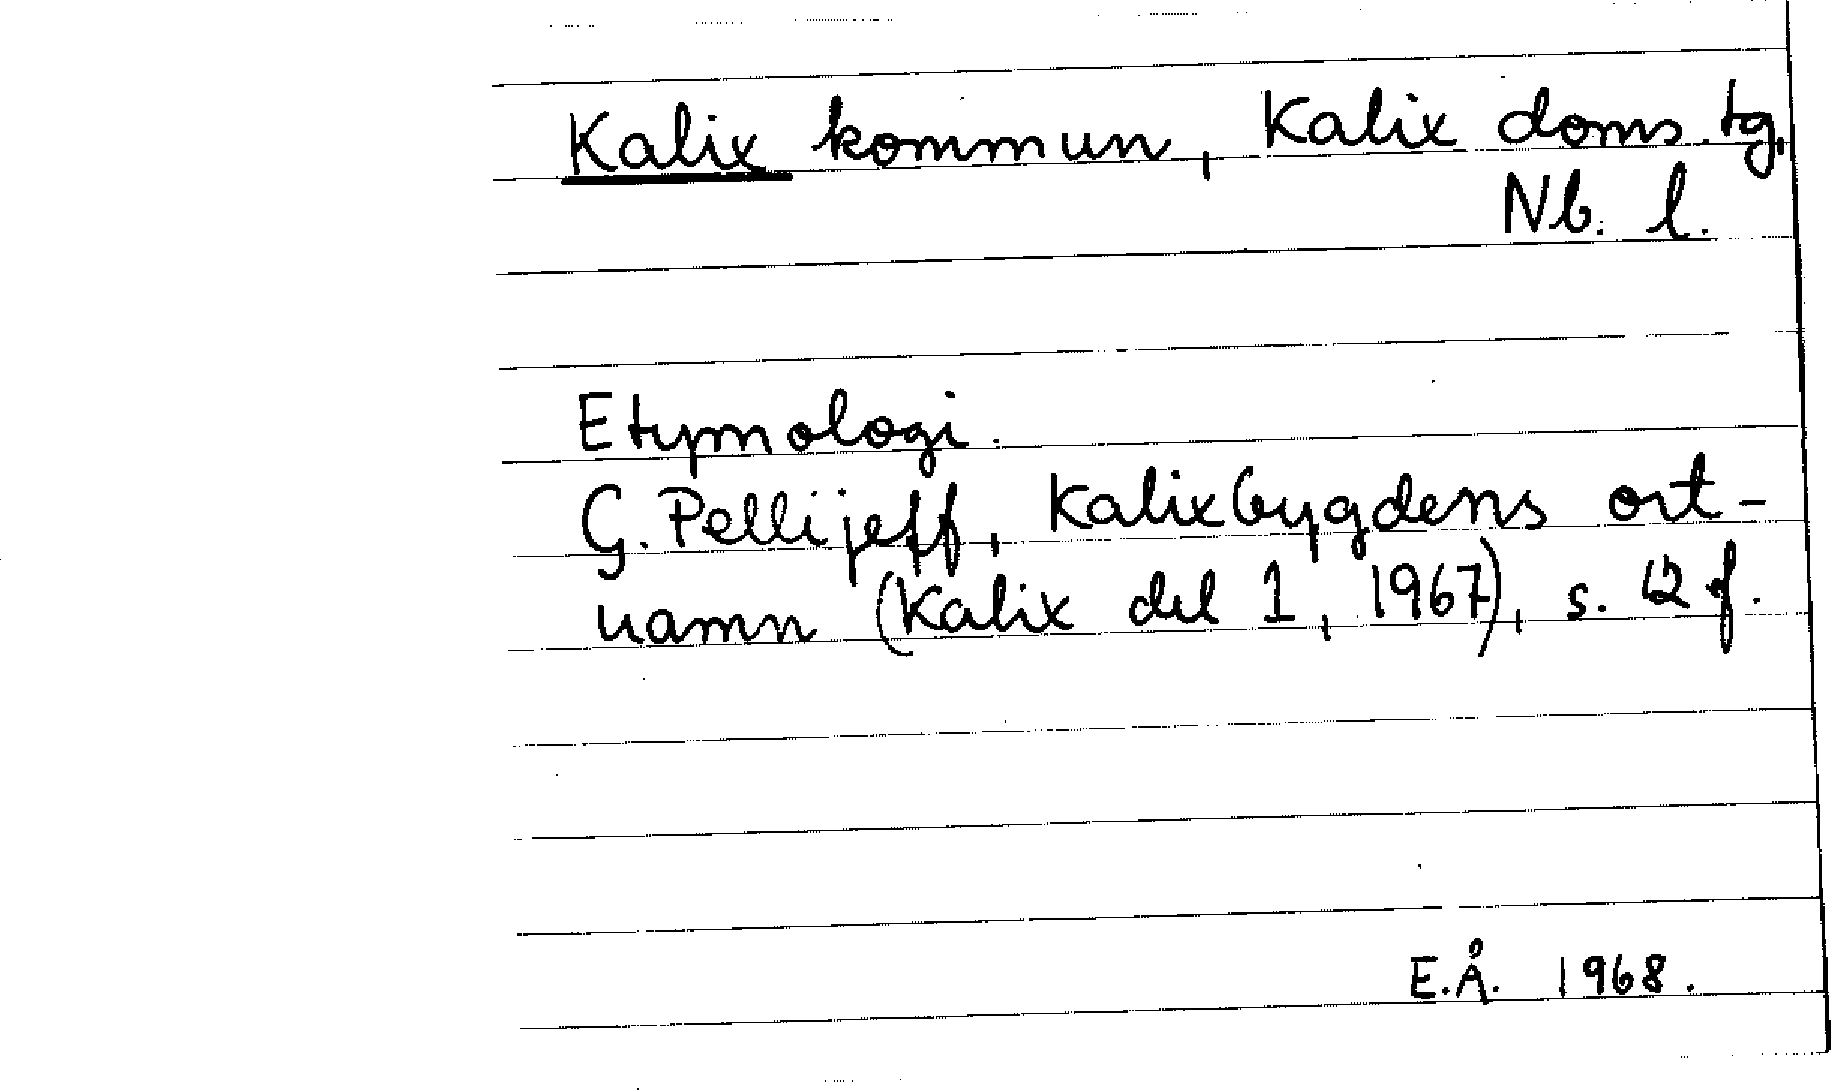 Kalix kommun, Kalix doms. tg,
Nb. l.
Etymologi.
G. Pellijeff, Kalixbygdens ort-
namn (Kalix del 1, 1967), s. 12 f.
E.Å. 1968.